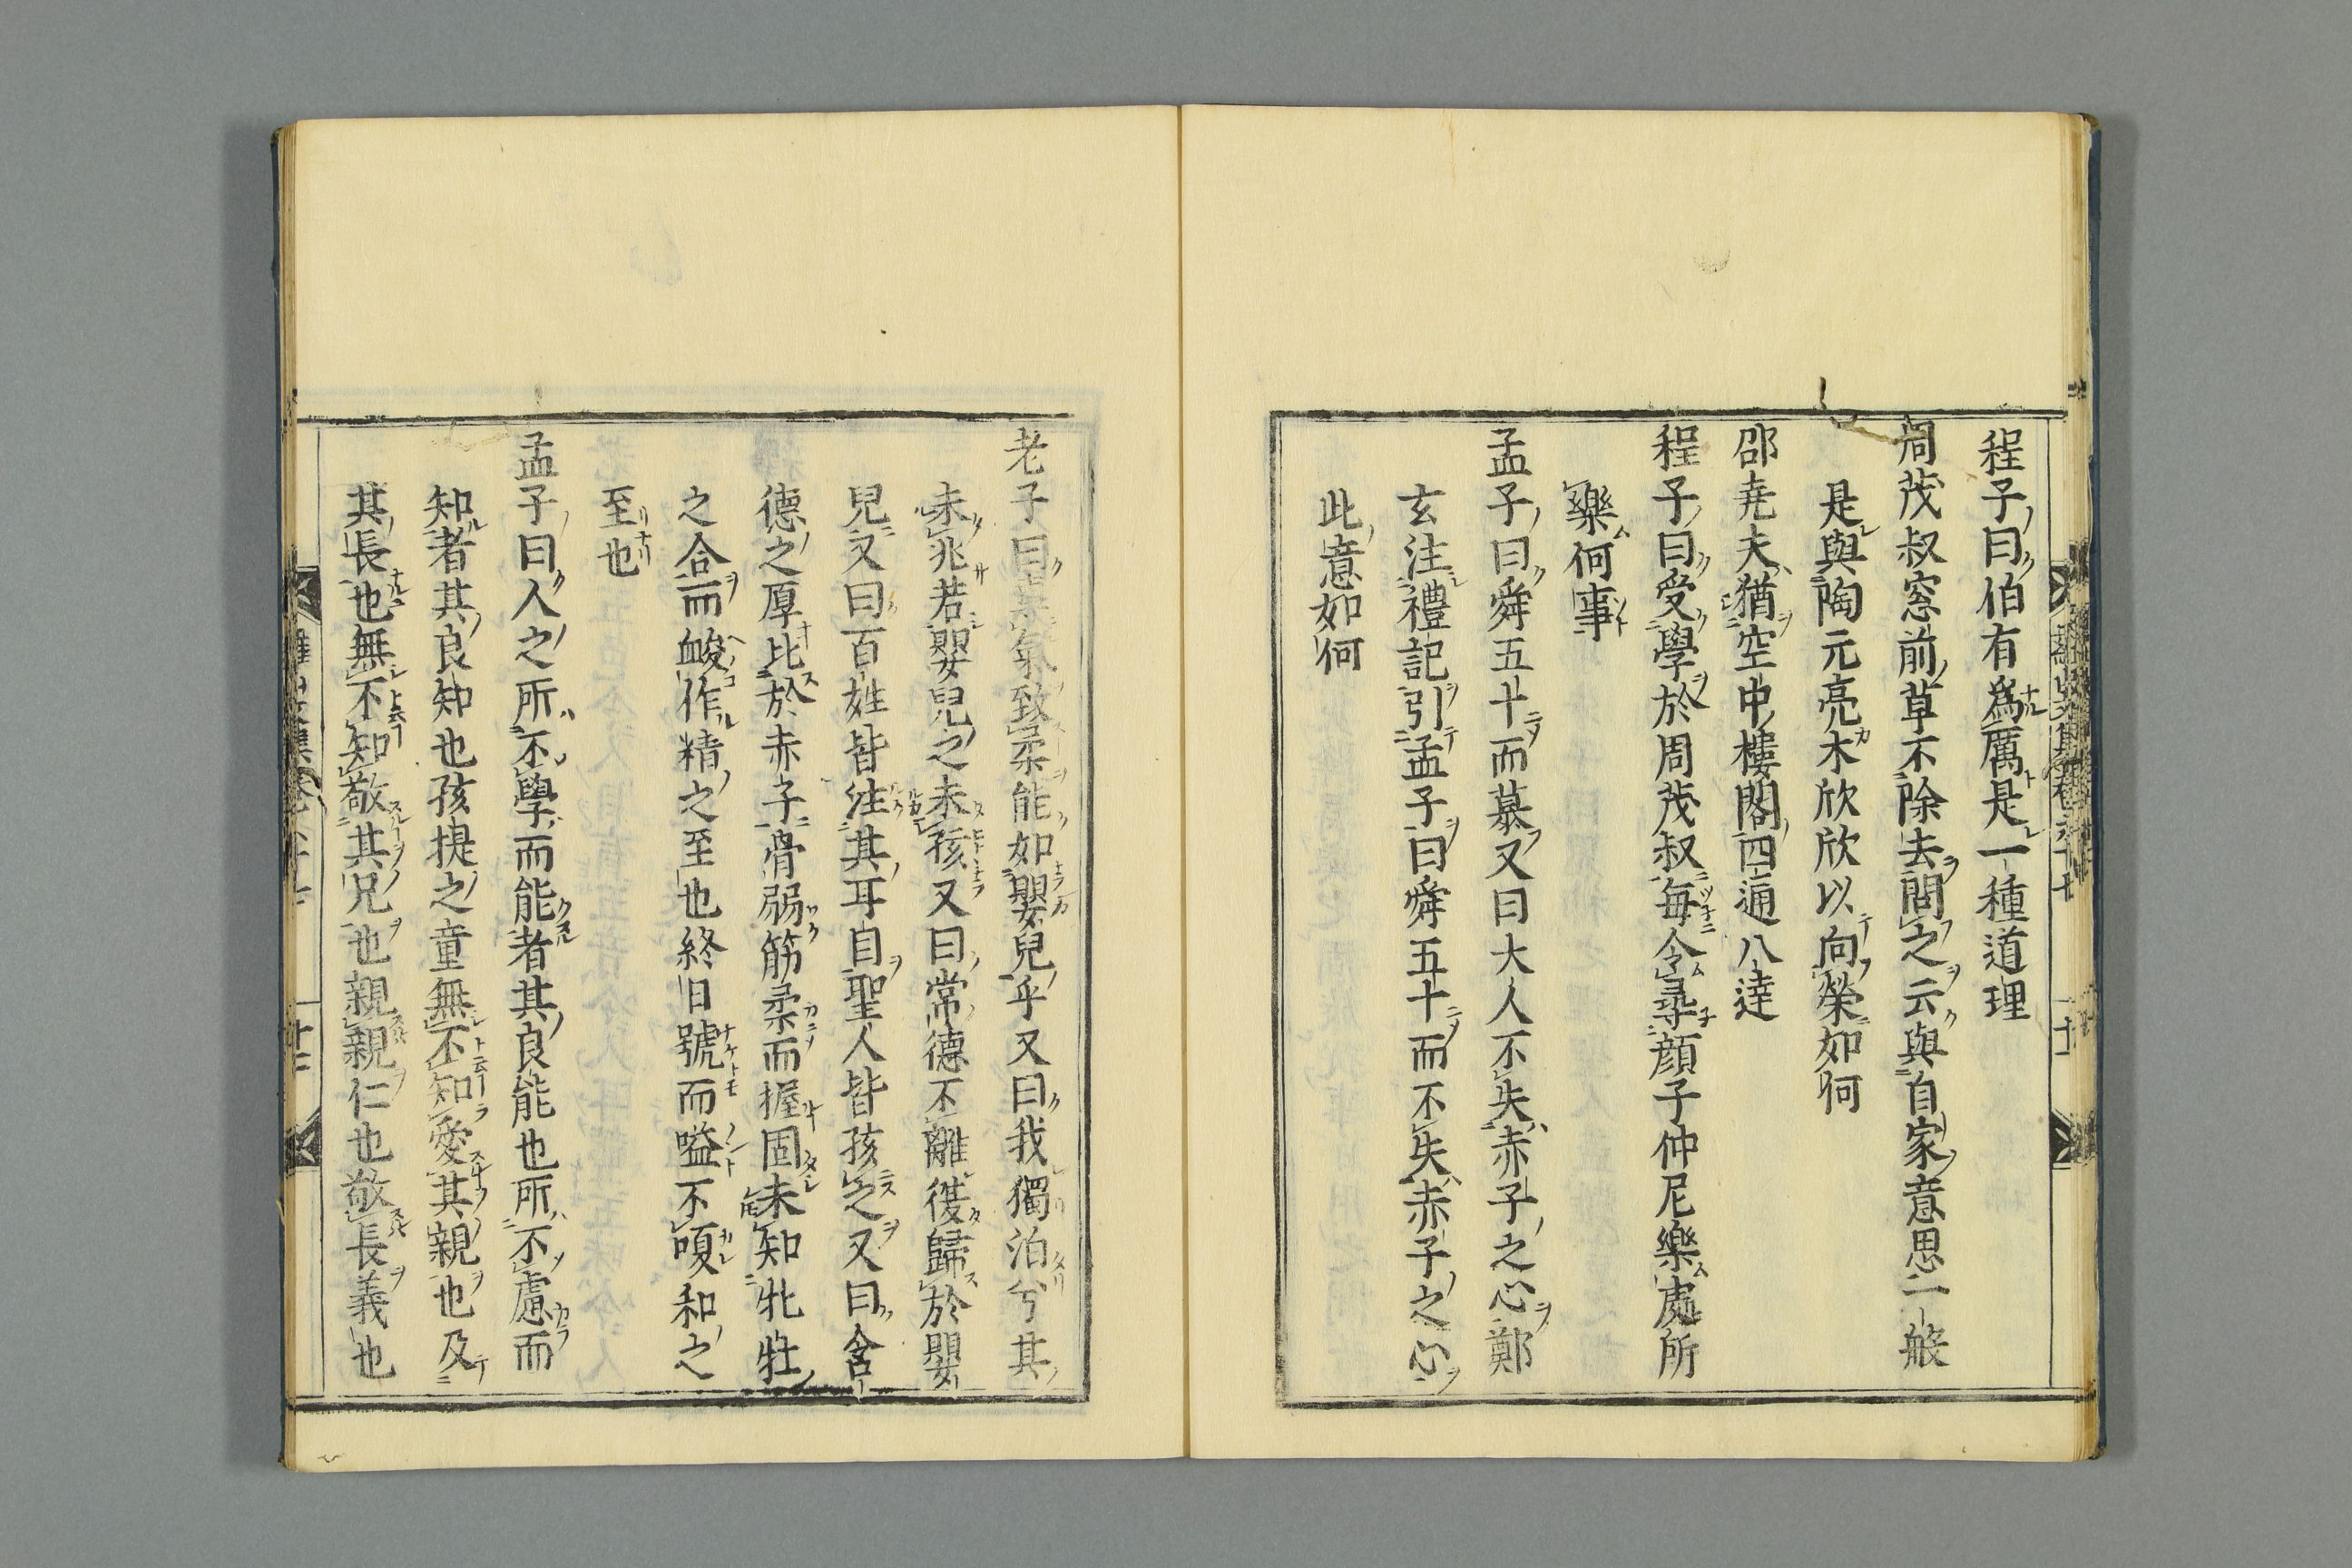 程子曰伯有爲厲是一種道理
周茂叔窓前草不除去問之云與自家意思一般
是與陶元亮木欣欣以向榮如何
邵堯夫猶空中樓閣四通八達
程子曰受學於周茂叔每令尋顔子仲尼樂處所
樂何事
孟子曰舜五十而慕又曰大人不失赤子之心鄭
玄注禮記引孟子曰舜五十而不失赤子之心
此意如何
老子曰專氣致柔能如嬰兒乎又曰我獨泊兮其
未兆若嬰兒之未孩又曰常德不離復歸於嬰
兒又曰百姓皆注其耳目聖人皆孩之又曰含
德之厚比於赤子骨弱筋柔而握固未知牝牡
之合而䘒作精之至也終日號而嗌不嗄和之
至也
孟子曰人之所不學而能者其良能也所不慮而
知者其良知也孩提之童無不知愛其親也及
其長也無不知敬其兄也親親仁也敬長義也